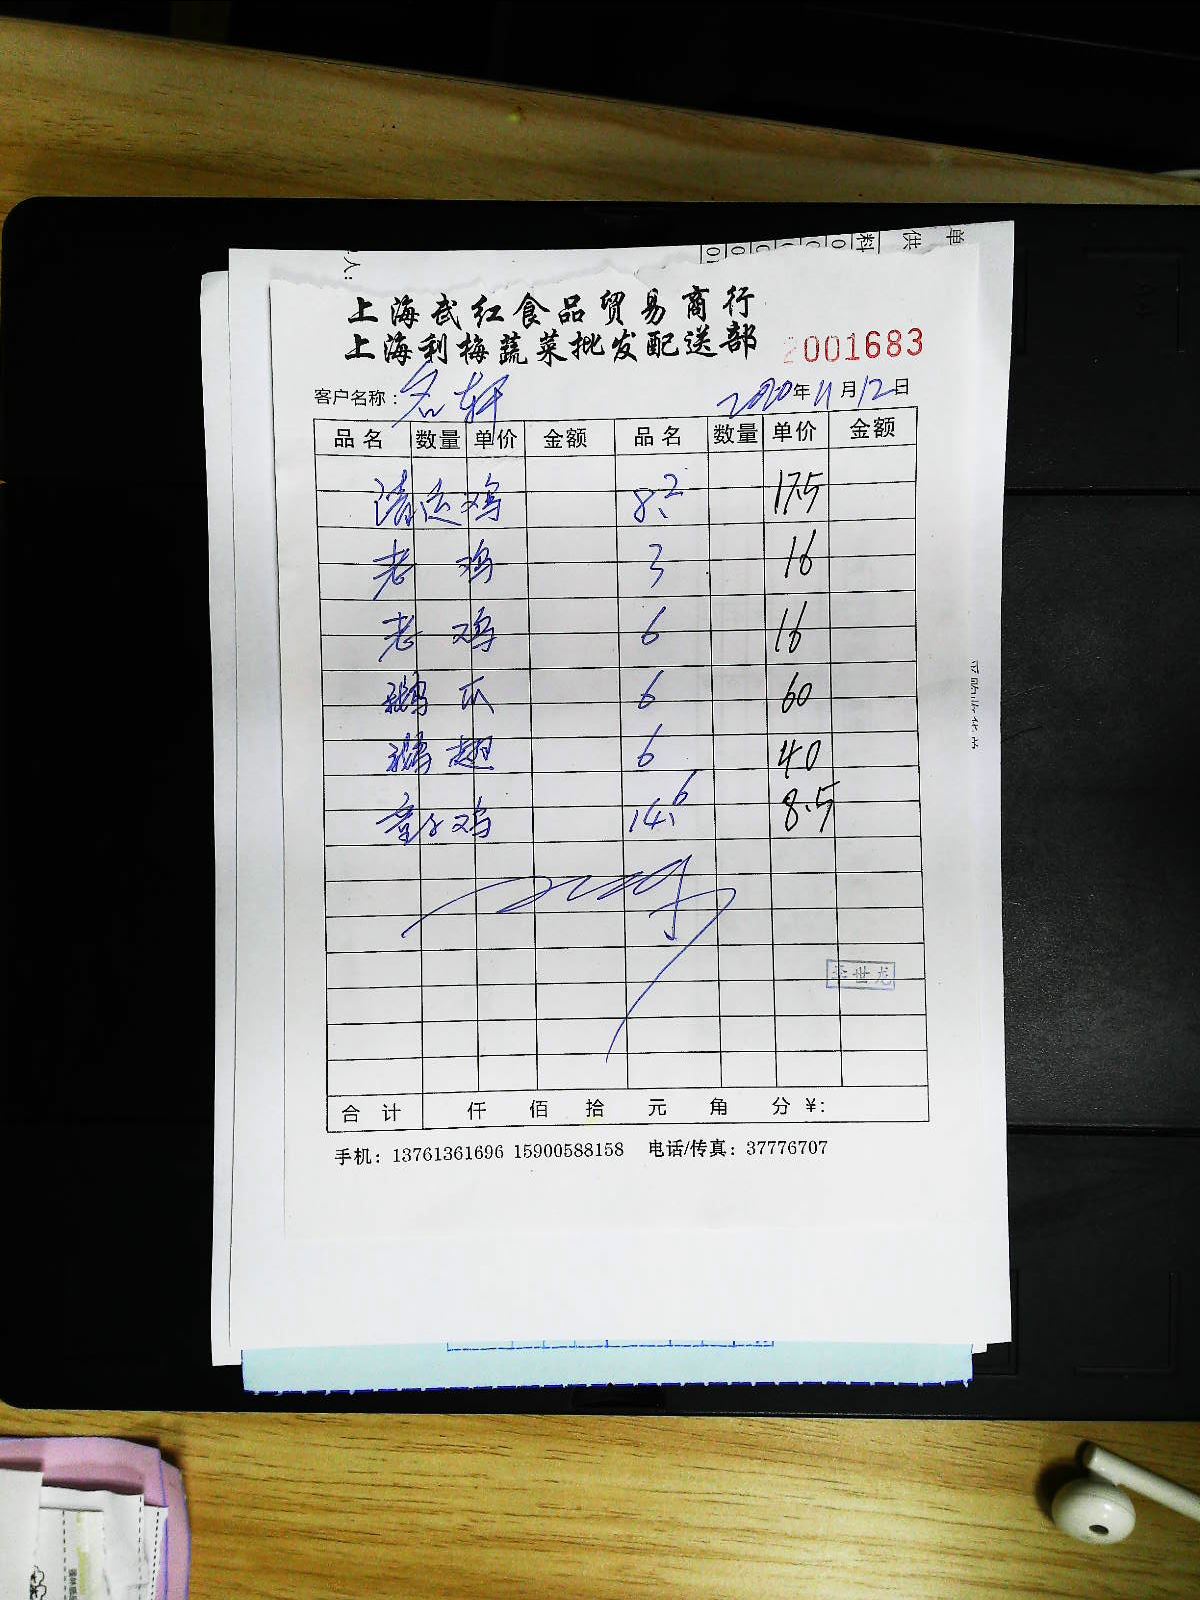 单
供
料
人:
上海武红食品贸易商行
上海利梅蔬菜批发配送部
2001683
客户名称: 名轩 2020年11月12日
品名 数量 单价 金额 品名 数量 单价 金额
清远鸡 8.2 17.5
老鸡 3 16
老鸡 6 16
鹅爪 6 60
鹅翅 6 40
童子鸡 14.6 8.5
世龙
合计 仟 佰 拾 元 角 分 ¥:
手机: 13761361696 15900588158 电话/传真: 37776707